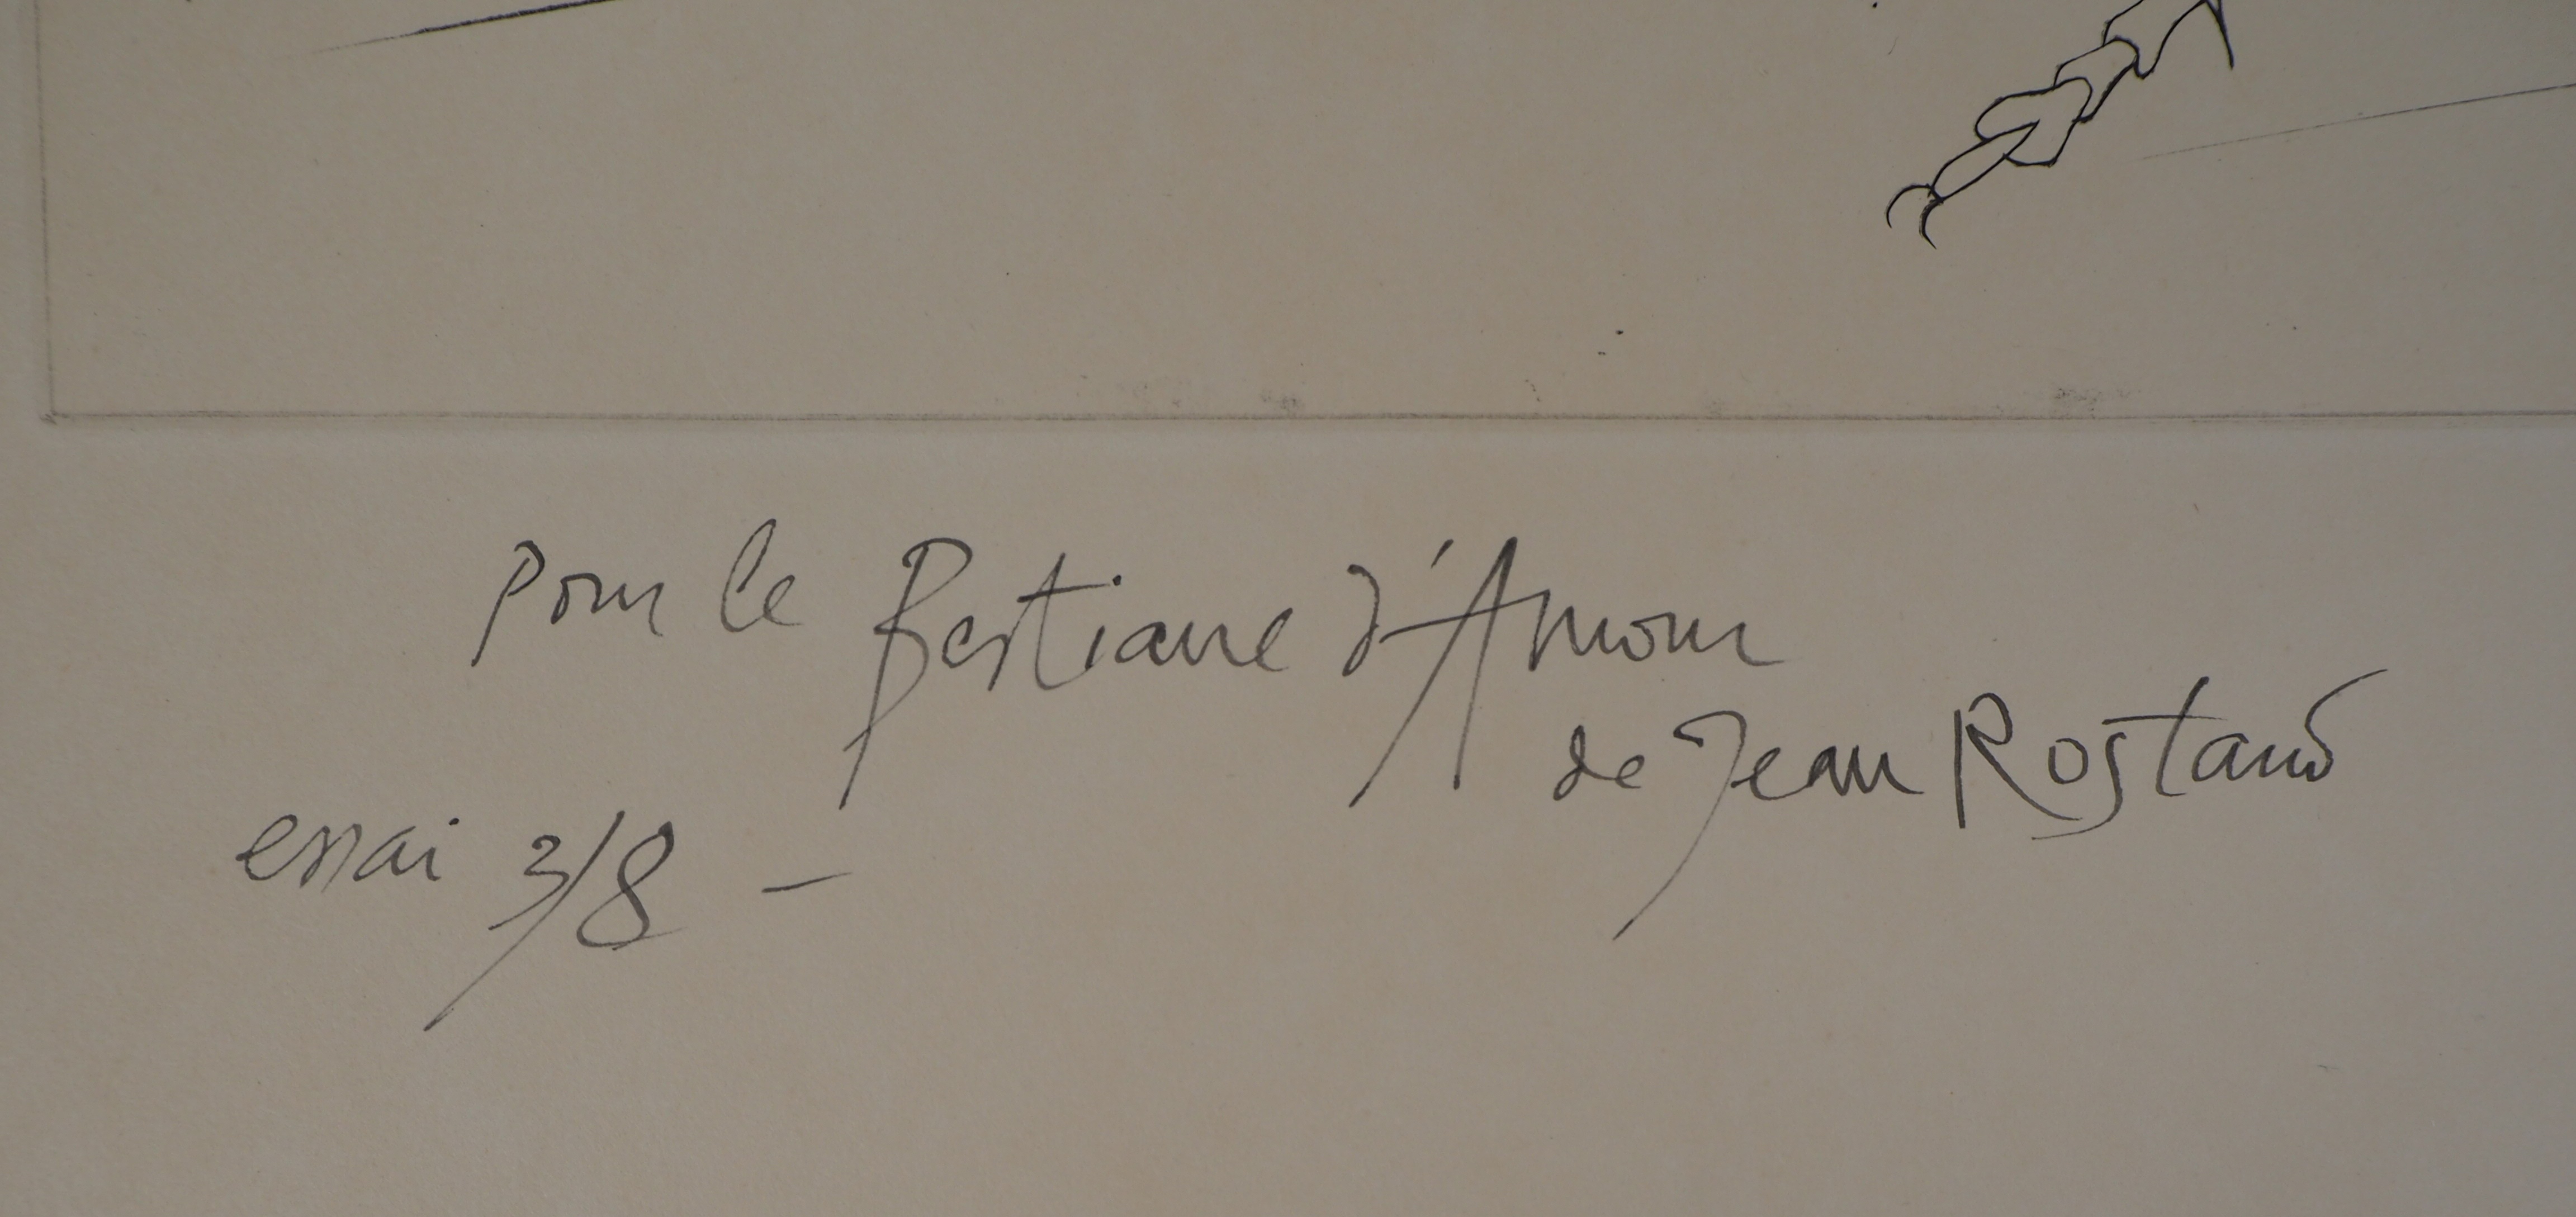 pour le Bestiaire d'Amour
de Jean Rostand
essai 3/8 –